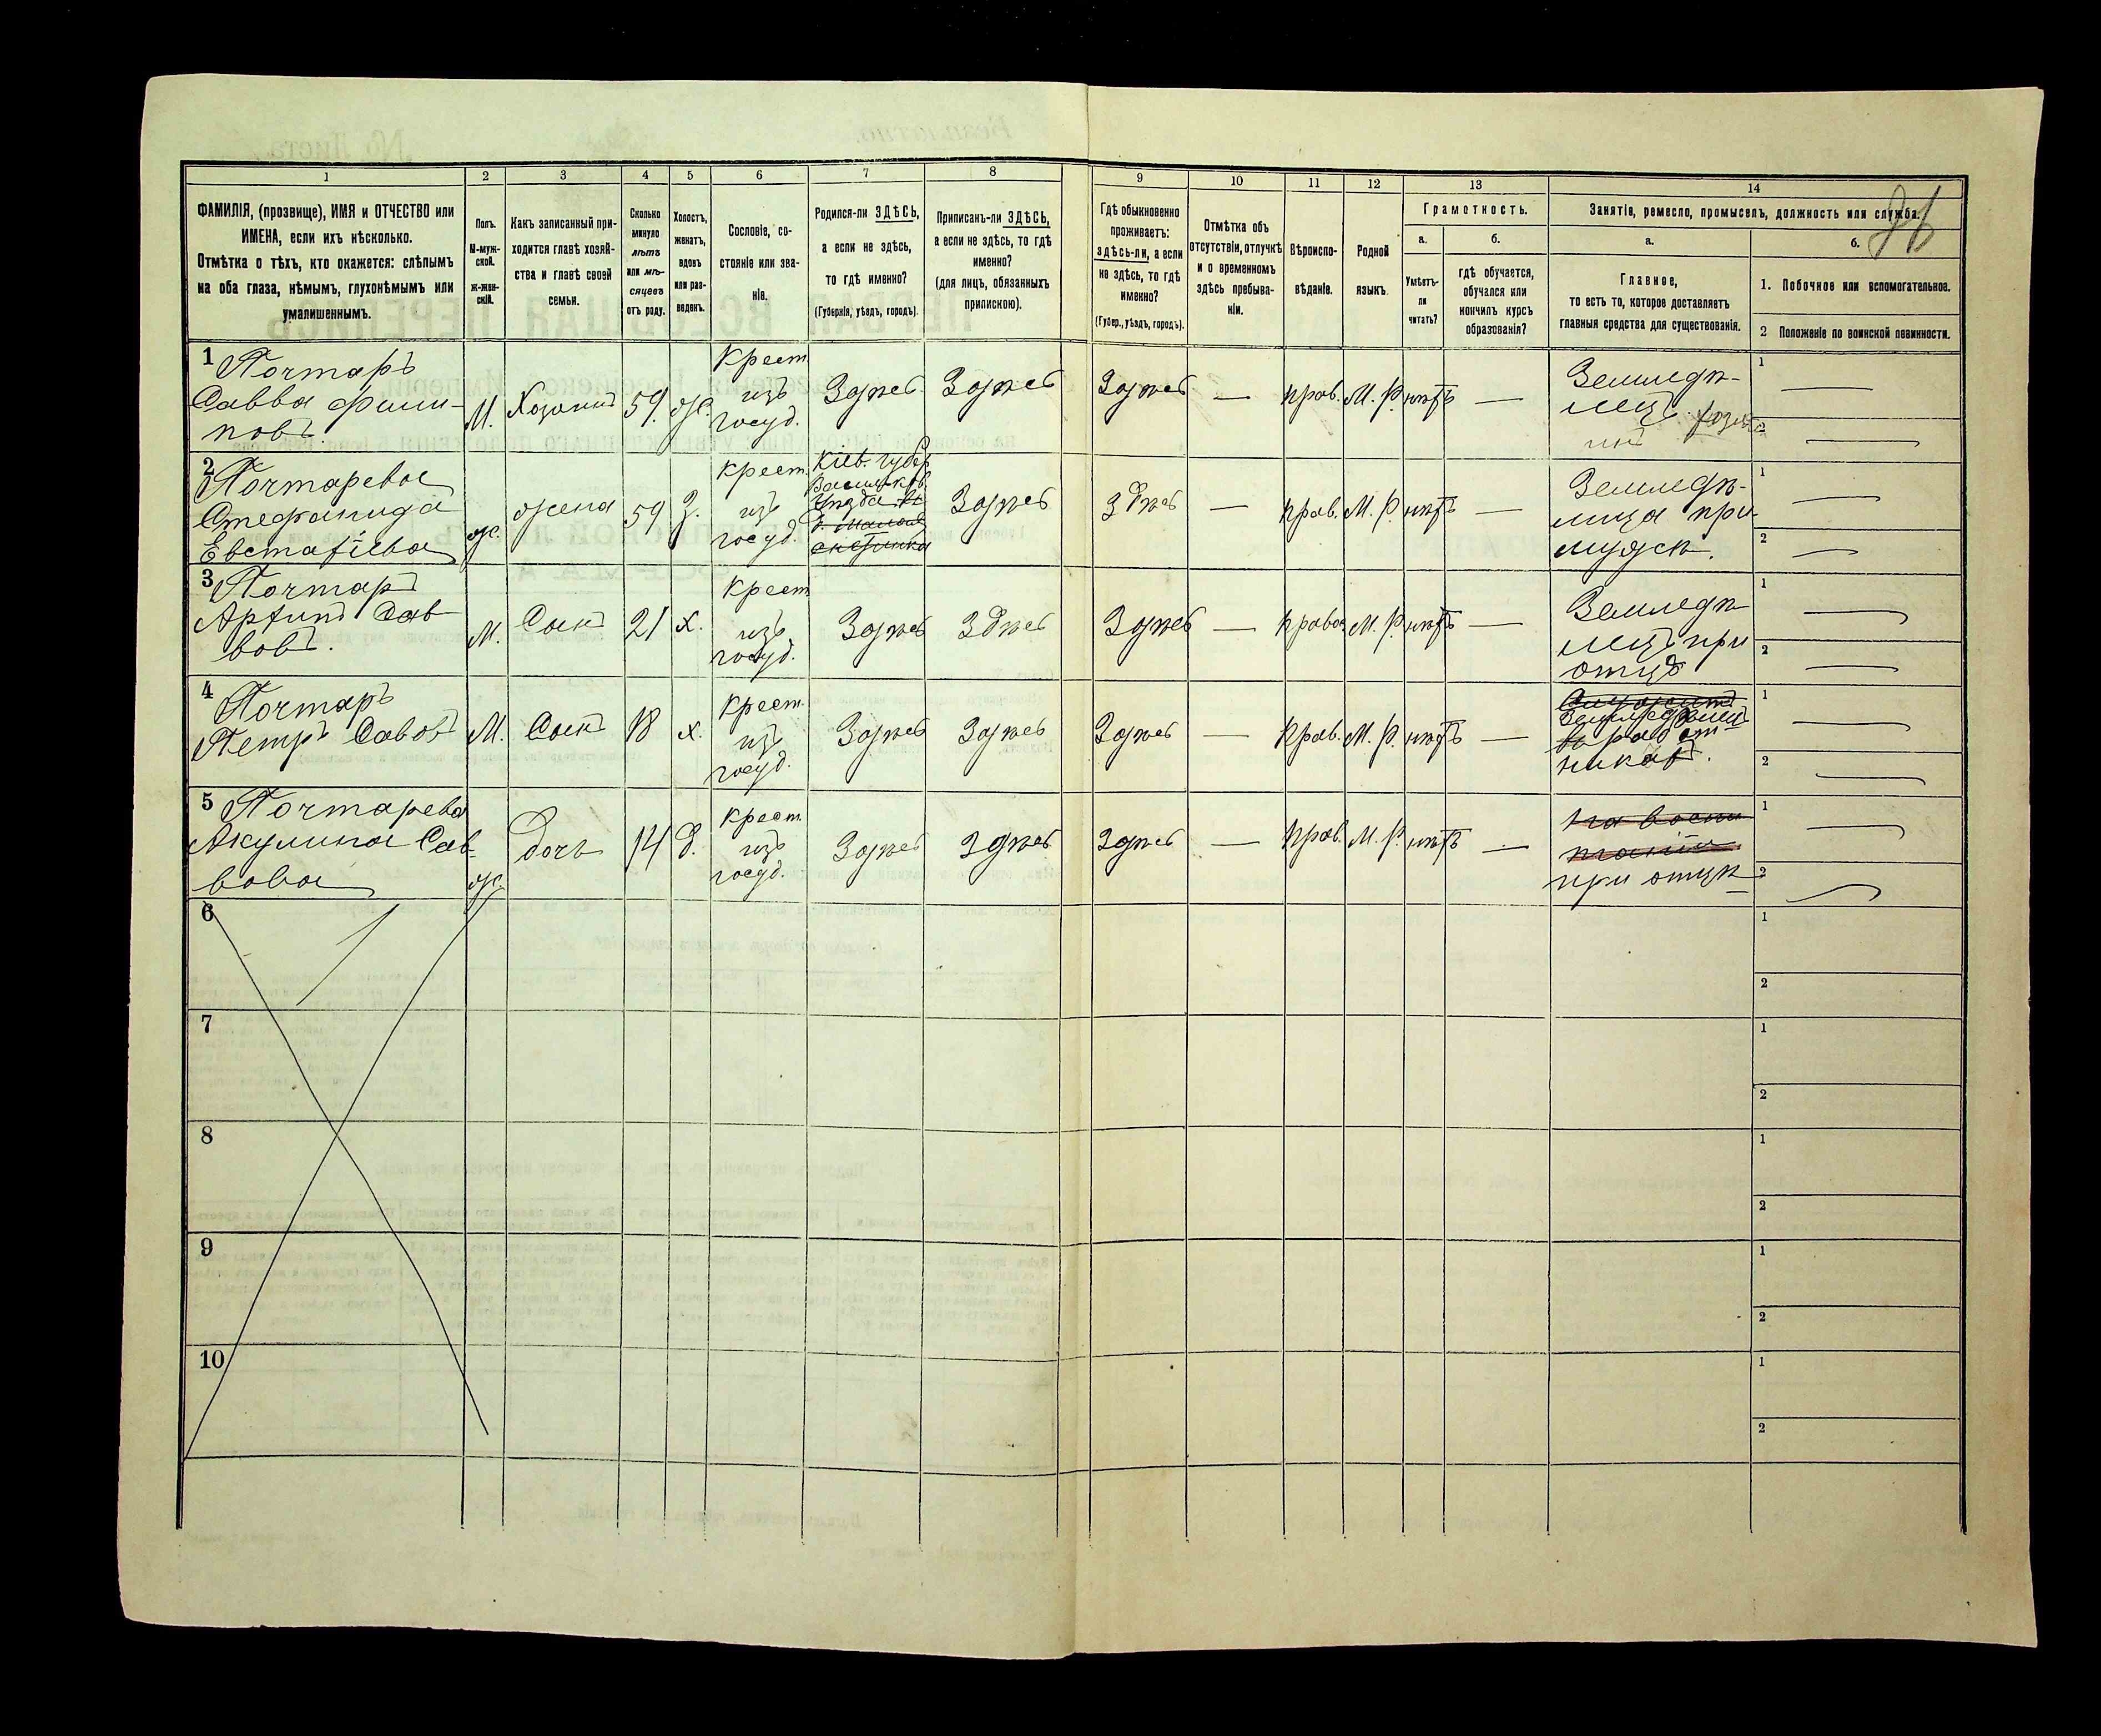 1 2 3 4 5 6 7 8 9 10 11 12 13 14
ФАМИЛІЯ, (прозвище), ИМЯ и ОТЧЕСТВО или
ИМЕНА, если ихъ нѣсколько.
Отмѣтка о тѣхъ, кто окажется: слѣпымъ
на оба глаза, нѣмымъ, глухонѣмымъ или
умалишеннымъ.
Полъ.
М-муж-
ской.
ж-жен-
скій.
Какъ записанный при-
ходится главѣ хозяй-
ства и главѣ своей
семьи.
Сколько
минуло
лѣтъ
или мѣ-
сяцевъ
отъ роду.
Холостъ,
женатъ,
вдовъ
или раз-
веденъ.
Сословіе, со-
стояніе или зва-
ніе.
Родился-ли ЗДѢСЬ,
а если не здѣсь,
то гдѣ именно?
(Губернія, уѣздъ, городъ).
Приписанъ-ли ЗДѢСЬ,
а если не здѣсь, то гдѣ
именно?
(для лицъ, обязанныхъ
припискою).
Гдѣ обыкновенно
проживаетъ:
здѣсь-ли, а если
не здѣсь, то гдѣ
именно?
(Губер., уѣздъ, городъ).
Отмѣтка объ
отсутствіи, отлучкѣ
и о временномъ
здѣсь пребыва-
ніи.
Вѣроиспо-
вѣданіе.
Родной
языкъ.
Грамотность.
а.
Умѣетъ-
ли
читать?
б.
гдѣ обучается,
обучался или
кончилъ курсъ
образованія?
Занятіе, ремесло, промыселъ, должность или служба.
а.
Главное,
то есть то, которое доставляетъ
главныя средства для существованія.
б.
1. Побочное или вспомогательное.
2 Положеніе по воинской повинности.
1 Почтаръ
Савва Фили-
повъ
М. Хозяинъ 59 ж.
Крест.
изъ
госуд.
Здѣсь Здѣсь Здѣсь — прав. М. Р. нѣтъ —
Земледѣ-
лецъ хозя
инъ
1
2
2 Почтарева
Стефанида
Евстафіева
ж. жена 59 З.
крест.
изъ
госуд.
Кіев. губер
Васильков.
Уѣзда
Здѣсь Здѣсь — прав. М. Р. нѣтъ —
Земледѣ-
лица при
мужѣ.
1
2
3 Почтаръ
Сав
вовъ.
М. Сынъ 21 х.
Крест
изъ
госуд.
Здѣсь Здѣсь Здѣсь — право М. Р. нѣтъ —
Земледѣ
лецъ при
отцѣ
1
2
4 Почтаръ
Петръ Савовъ
М. Сынъ 18 х.
Крест.
изъ
госуд.
Здѣсь Здѣсь Здѣсь — Прав. М. Р. нѣтъ —
работ
1
2
5 Почтарева
Акулина Сав-
вова
ж. Дочь 14 д.
Крест
изъ
госуд.
Здѣсь Здѣсь Здѣсь — Прав. М. Р. нѣтъ —
на воспи
таніи
при отцѣ
1
2
6
1
2
7
1
2
8
1
2
9
1
2
10
1
2